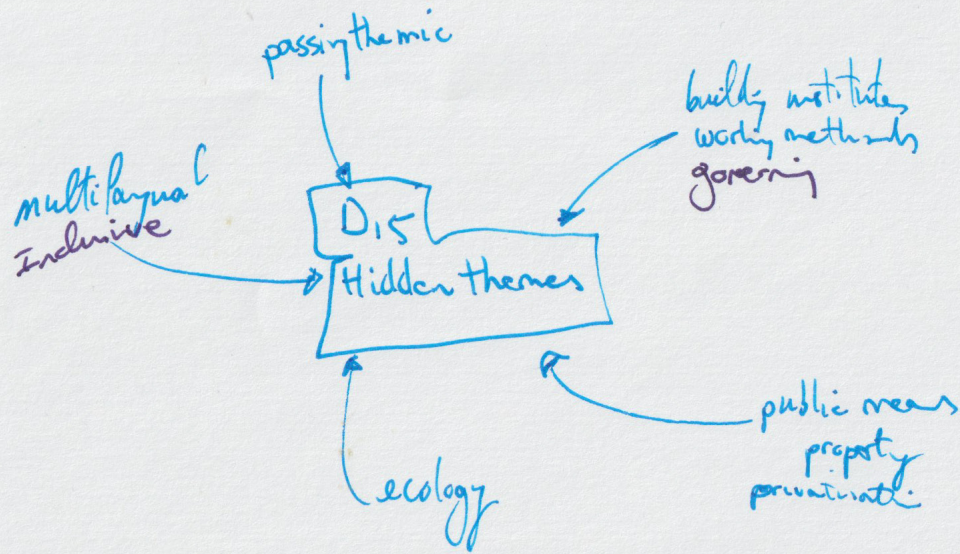 passing the mic
building institutes
working methods
governing
multilingual
Inclusive
D15
Hidden themes
public means
property
ecology